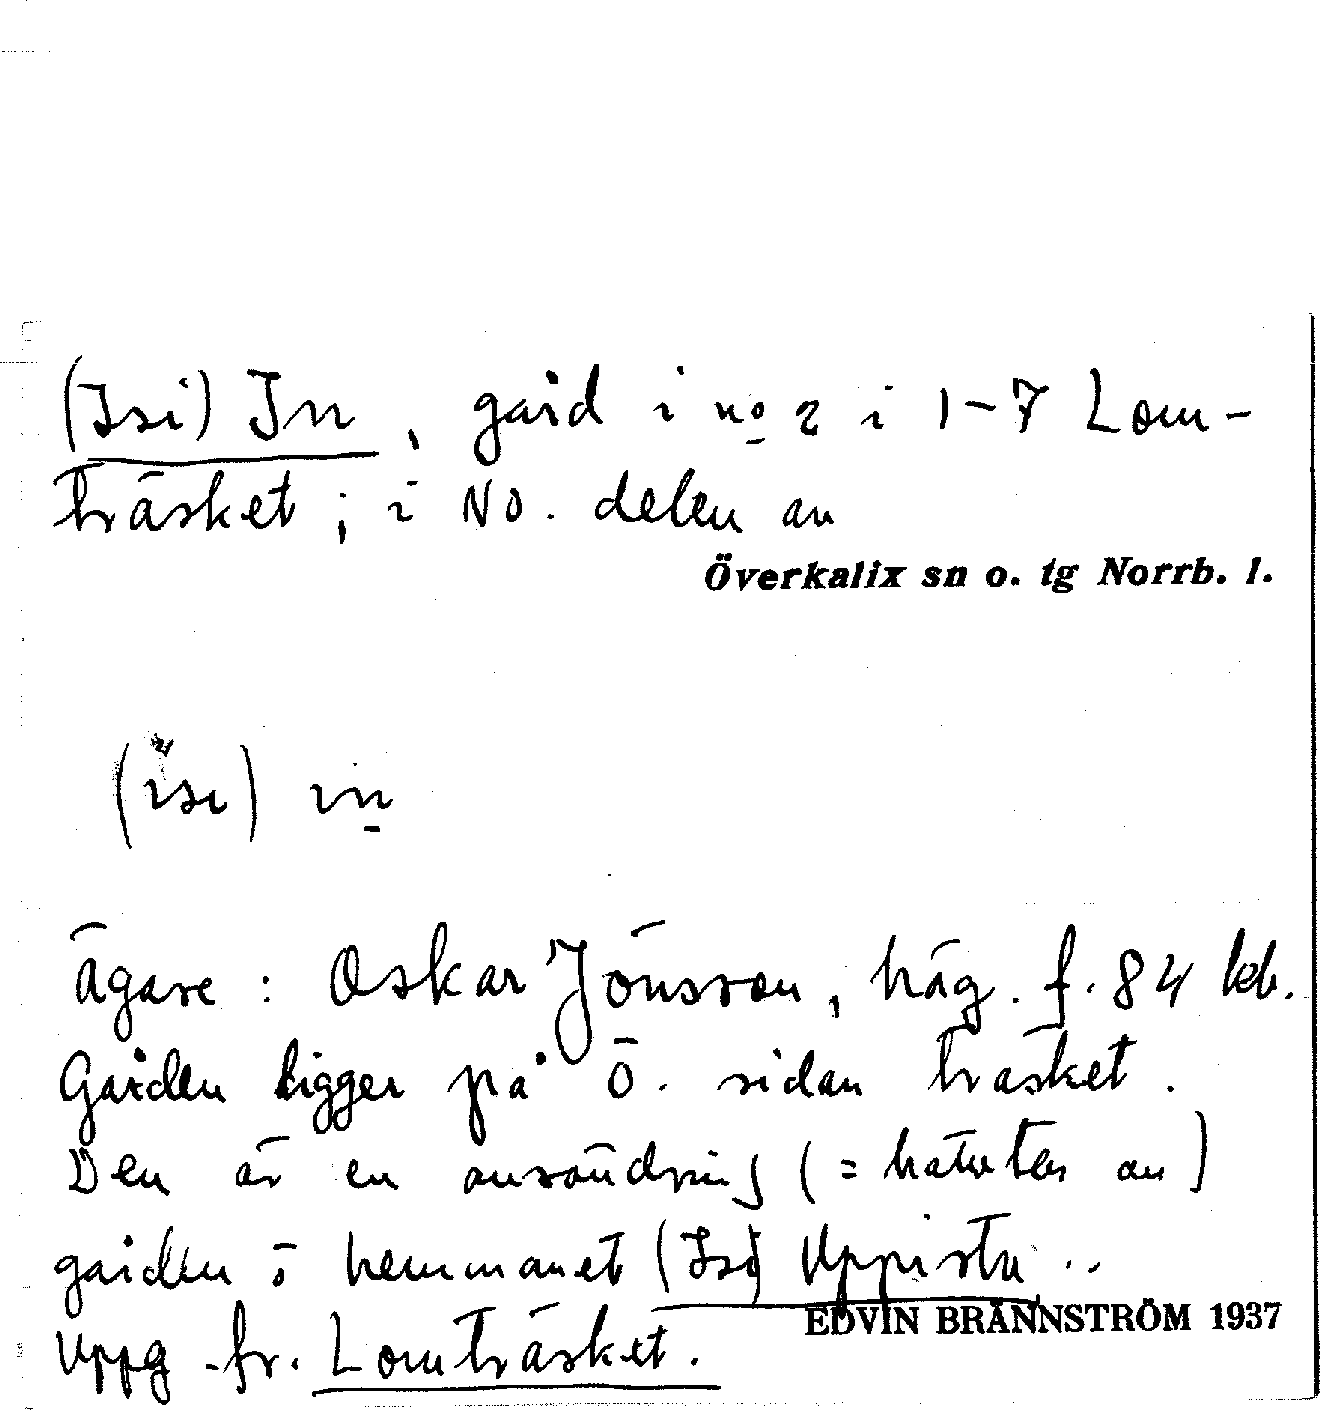 (Isi) In, gård i no 2 i 1-7 Lom-
träsket; i NO. delen av
Överkalix sn o. tg Norrb. l.
(isi) in
Ägare: Oskar Jönsson, häg. f. 84 lkb.
Gården ligger på Ö. sidan träsket.
Den är en avsöndring (= hälvten av)
gården o hemmanet (Isi) Uppistu ..
EDVIN BRÄNNSTRÖM 1937
Uppg fr. Lomträsket.